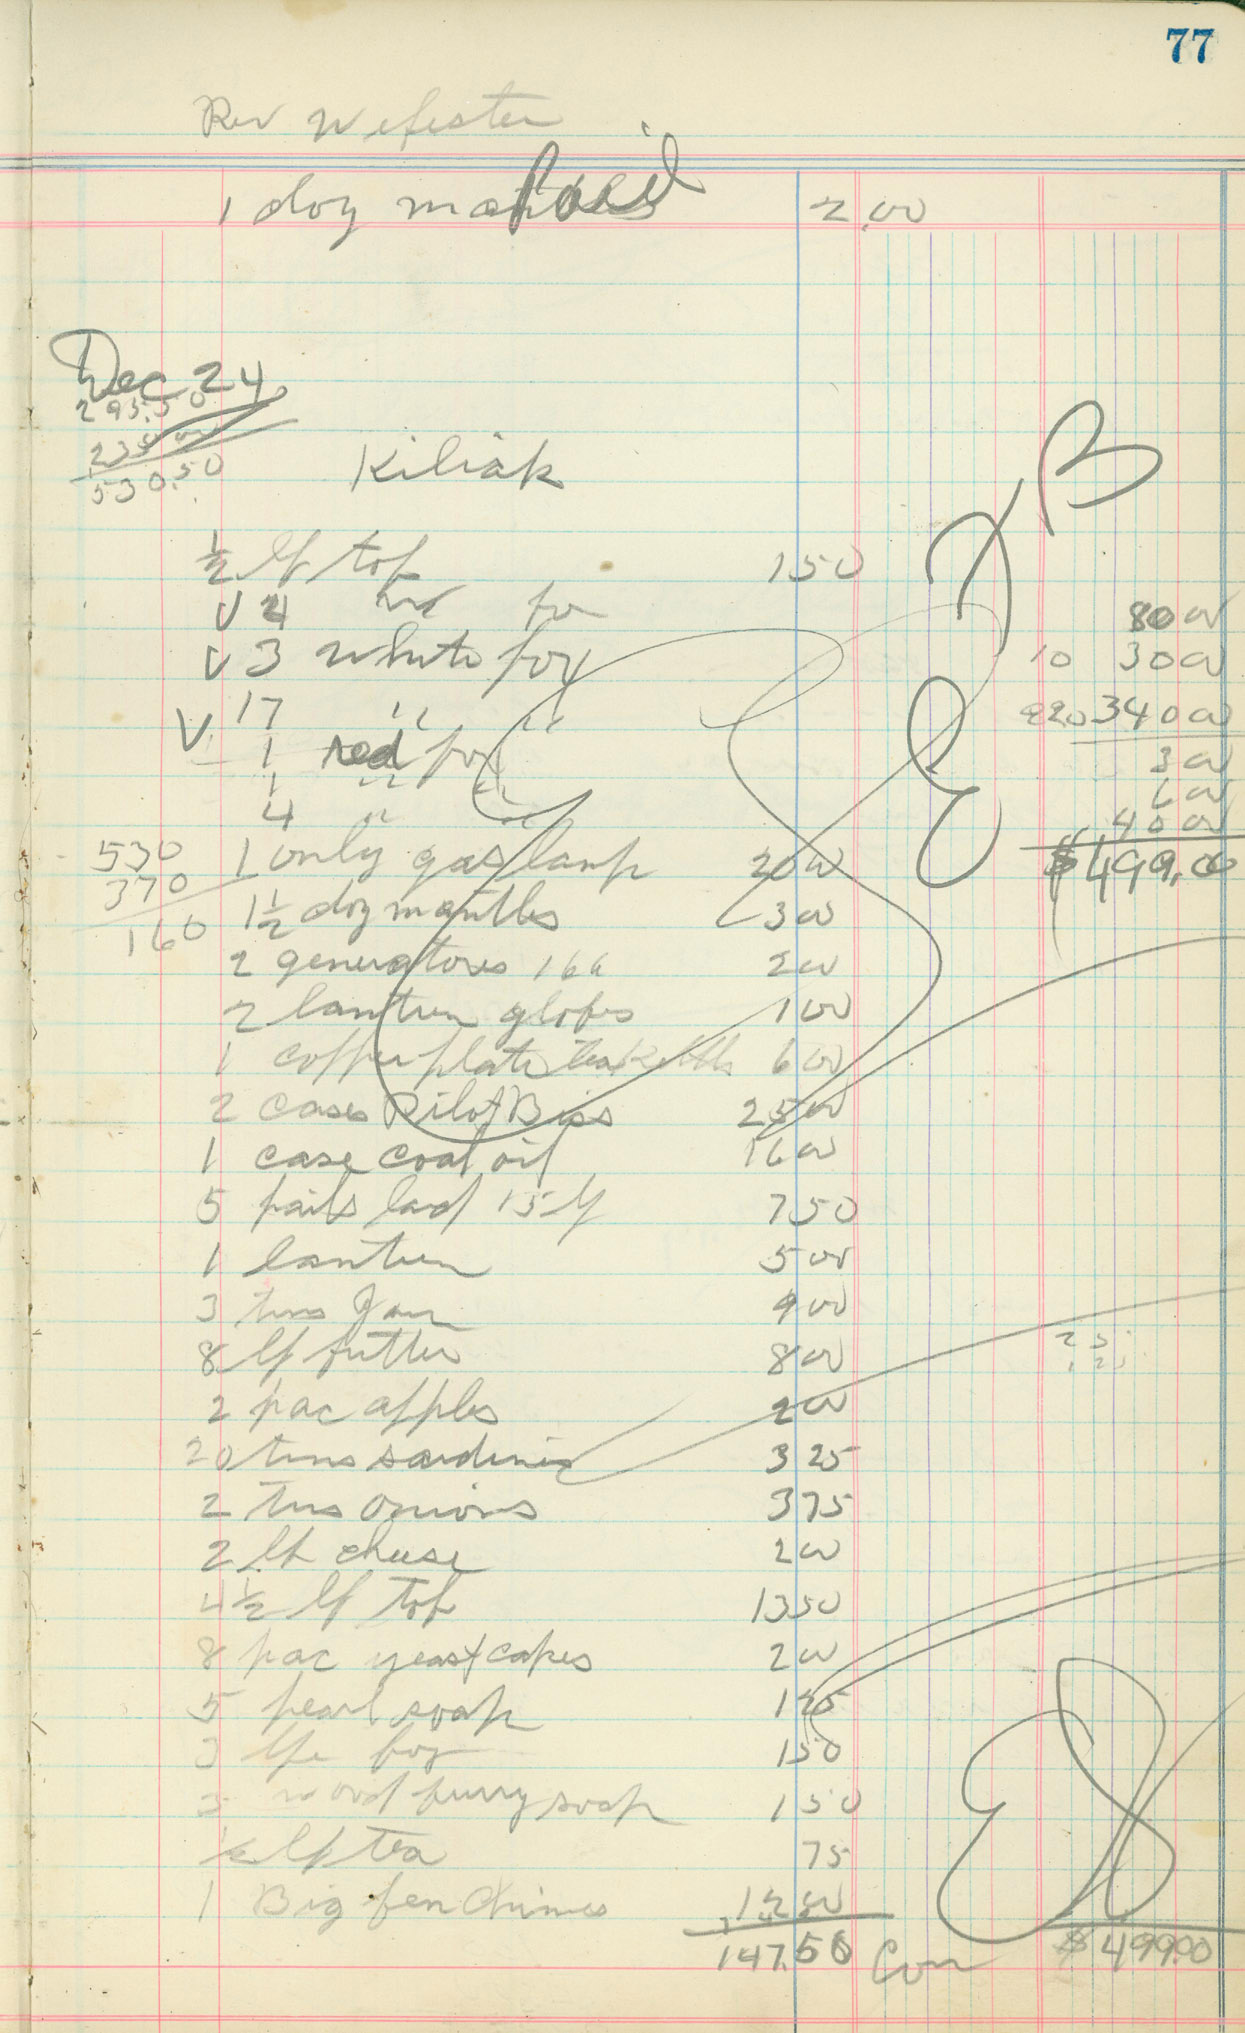 77
Rev Webester
1 doz mantles Paid 2.00
Dec 24
293.50
235 00
530.50
Kiliak
½ lb tob 150
V 4 red fox 80 00
V 3 white fox 10 30 00
V 17 " " 220 340 00
1 red fox 3 00
1 " " 6 00
4 " 40 00
$499.00
530
370
160
1 only gas lamp 20 00
1½ doz mantles 3 00
2 generatores 166 2 00
2 lantern globes 1 00
1 copper plate tea kettle 6 00
2 cases Pilot Biss 25 00
1 case coal oil 16 00
5 pails lard 15 lb 7 50
1 lantern 5 00
3 tins Jam 9 00
8 lb butter 8 00
25
125
2 pac apples 2 00
20 tins sardines 3 25
2 tins onions 3 75
2 lb cheese 2 00
4½ lb tob 13 50
8 pac yeast cakes 2 00
5 pearl soap 1 25
3 1 50
3 wood purry soap 1 50
½ lb tea 75
1 Big Ben Chimes 12 00
147.50 $499.00